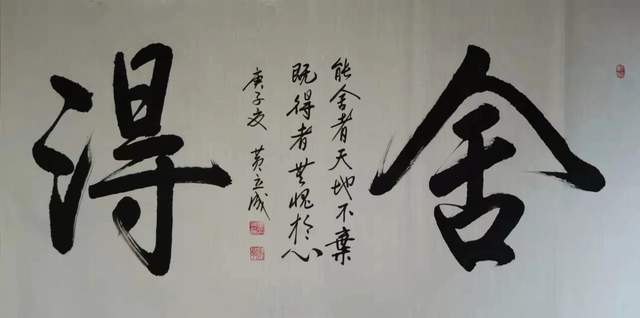 舍
能舍者天地不棄
既得者無愧於心
庚子夏 黄立成
得